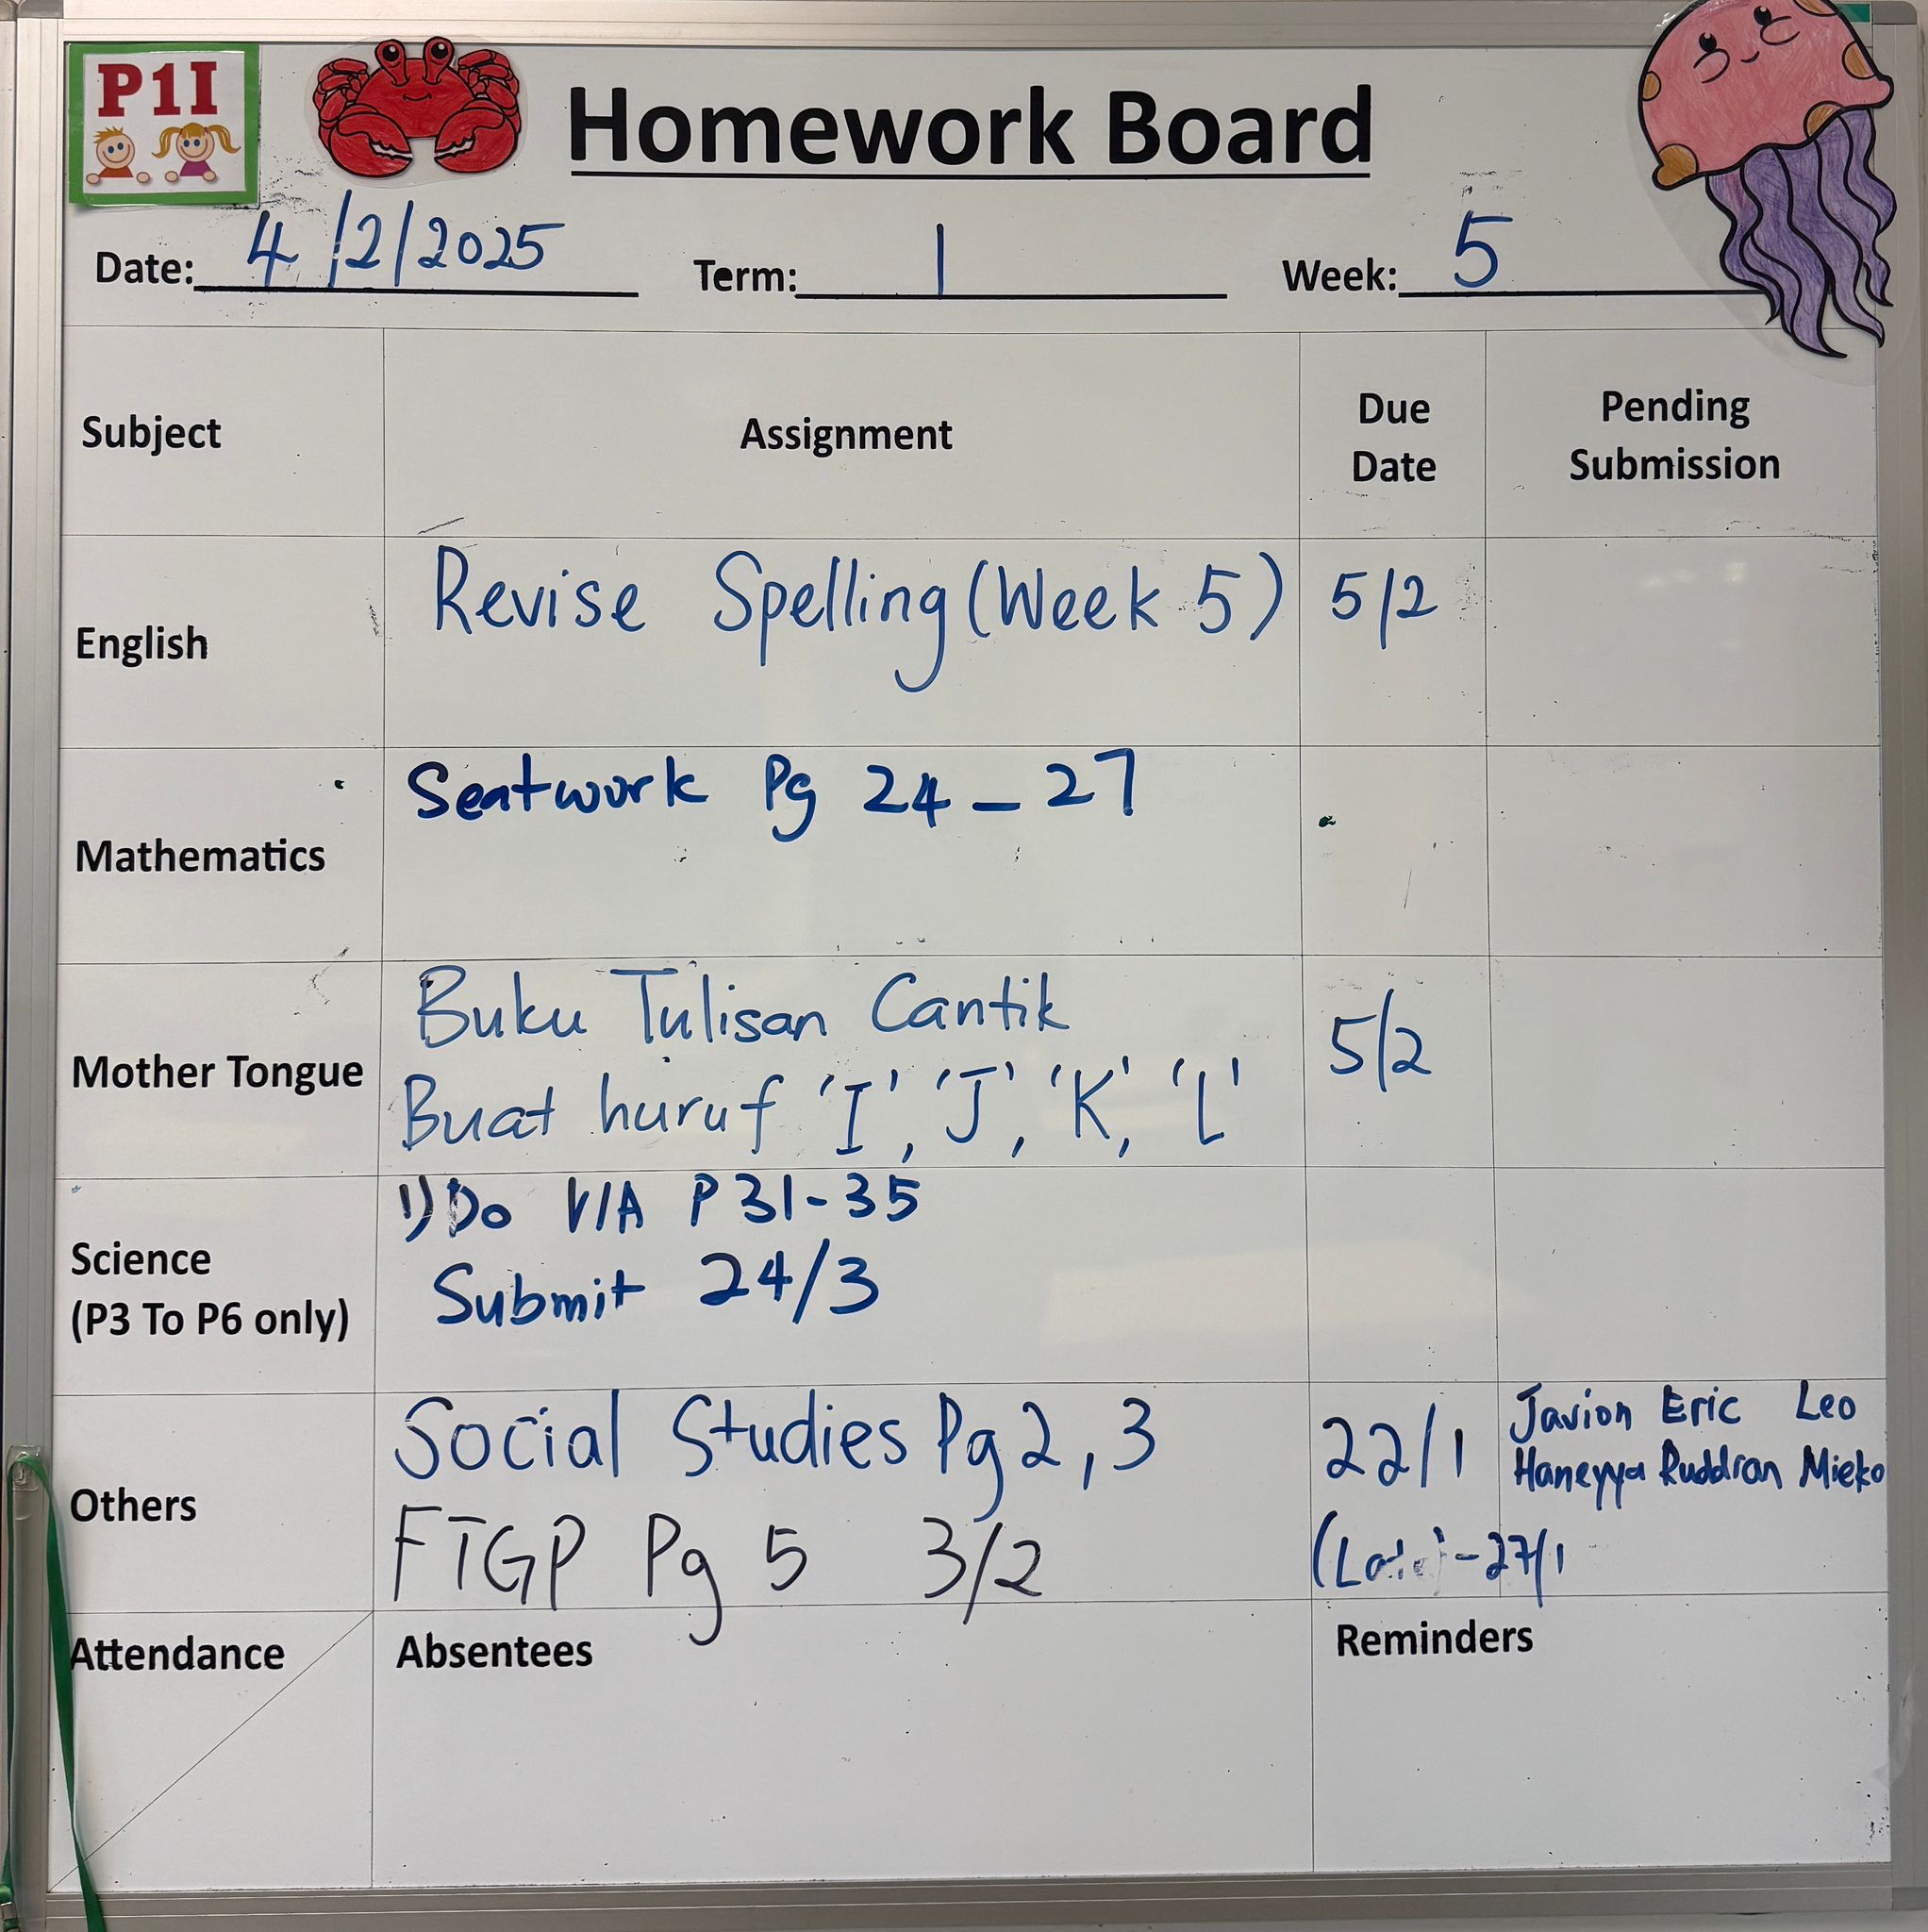 P1I
Homework Board
Date: 4/2/2025 Term: 1 Week: 5
Subject Assignment Due Date Pending Submission
English Revise Spelling (Week 5) 5/2
Mathematics Seatwork Pg 24 – 27
Mother Tongue Buku Tulisan Cantik 5/2
Buat huruf 'I', 'J', 'K', 'L'
Science (P3 To P6 only) 1) Do V/A P 31-35
Submit 24/3
Others Social Studies Pg 2, 3 22/1 Javion Eric Leo
Haneyya Ruddran Mieko
FTGP Pg 5 3/2 - 27/1
Attendance Absentees Reminders